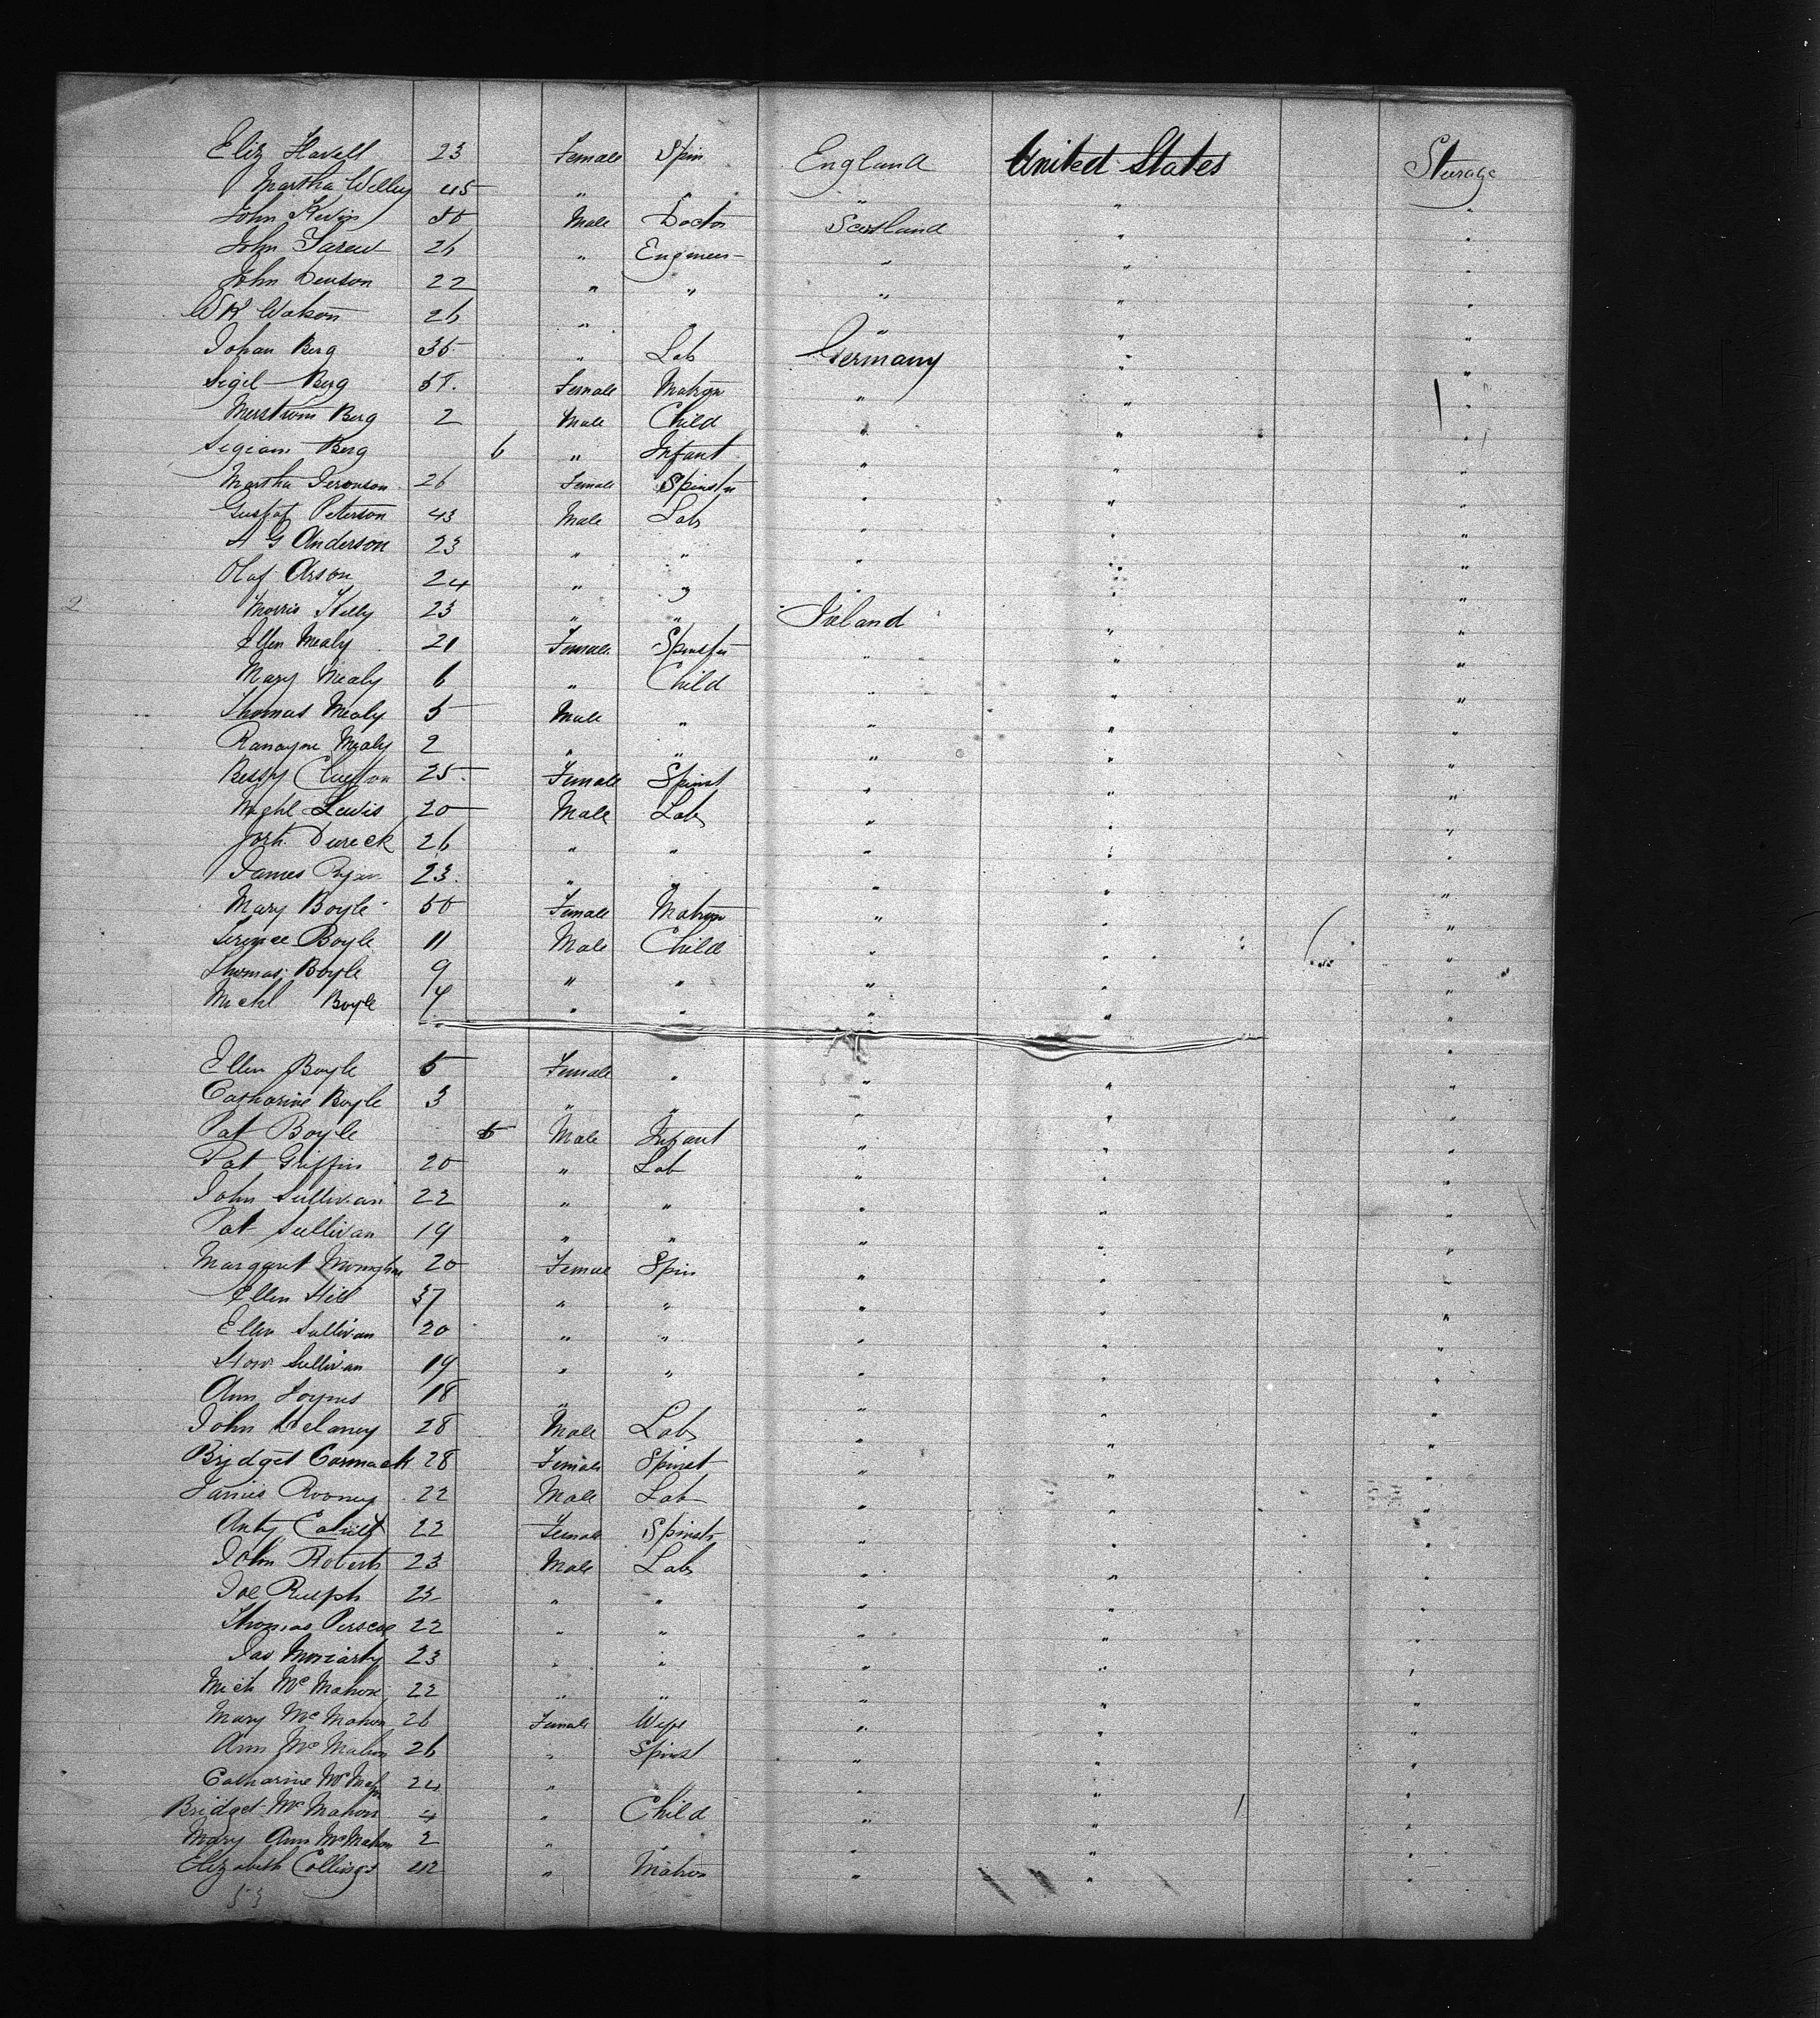 Eliz Havell 23 Female Spin England United States Sterage
Martha Willey 45 " " " "
John Kevin 50 Male Doctor Scotland " "
John 26 " Engineer " " "
John Denson 22 " " " " "
W R Watson 26 " " " " "
Johan Berg 35 " Lab Germany " "
Sigil Berg Female Matron " " "
Berg 2 Male Child " " "
Berg 6 " Infant " " "
Martha 26 Female Spinster " " "
Gustaf Peterson 43 Male Lab " " "
A G Anderson 23 " " " " "
Olaf Arson 24 " " " " "
Morris Kelly 23 " " Ireland " "
Ellen Mealy 21 Female Spinster " " "
Mary Mealy 6 " Child " " "
Thomas Mealy 5 Male " " " "
Ranayne Mealy 2 " " " " "
Bessy 25 Female Spinst " " "
Mchl Lewis 20 Male Lab " " "
Dureck 26 " " " " "
James Ryan 23 " " " " "
Mary Boyle 50 Female Matron " " "
Terence Boyle 11 Male Child " " "
Thomas Boyle 9 " " " " "
Michl Boyle 7 " " " " "
Ellen Boyle 5 Female " " " "
Catharine Boyle 3 " " " " "
Pat Boyle 6 Male Infant " " "
Pat Griffin 20 " Lab " " "
John Sullivan 22 " " " " "
Pat Sullivan 19 " " " " "
Margaret 20 Female Spin " " "
Ellen Hill 37 " " " " "
Ellen Sullivan 20 " " " " "
Sullivan 19 " " " " "
Ann Joynes 18 " " " "
John Delaney 28 Male Lab " " "
Bridget Cormack 28 Female Spinst " " "
James Rooney 22 Male Lab " " "
Anty 22 Female Spinstr " " "
John Roberts 23 Male Lab " " "
Joe 22 " " " " "
Thomas 22 " " " " "
Jas Moriarty 23 " " " " "
Mich McMahon 22 " " " " "
Mary McMahon 26 Female Wife " " "
Ann McMahon 26 " Spinst " " "
Catharine 24 " " " " "
Bridget McMahon 4 " Child " " "
Mary Ann McMahon 2 " " " " "
Elizabeth Collings 42 " Matron " " "
53